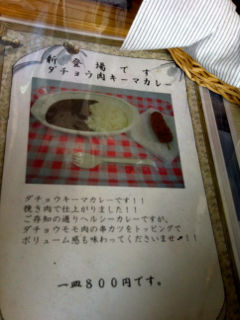 新登場です
ダチョウ肉キーマカレー
ダチョウキーマカレーです！！
挽き肉で仕上がりました！！
ご存知の通りヘルシーカレーですが、
ダチョウモモ肉の串カツをトッピングで
ボリューム感も味わってくださいませ！！
一皿８００円です。